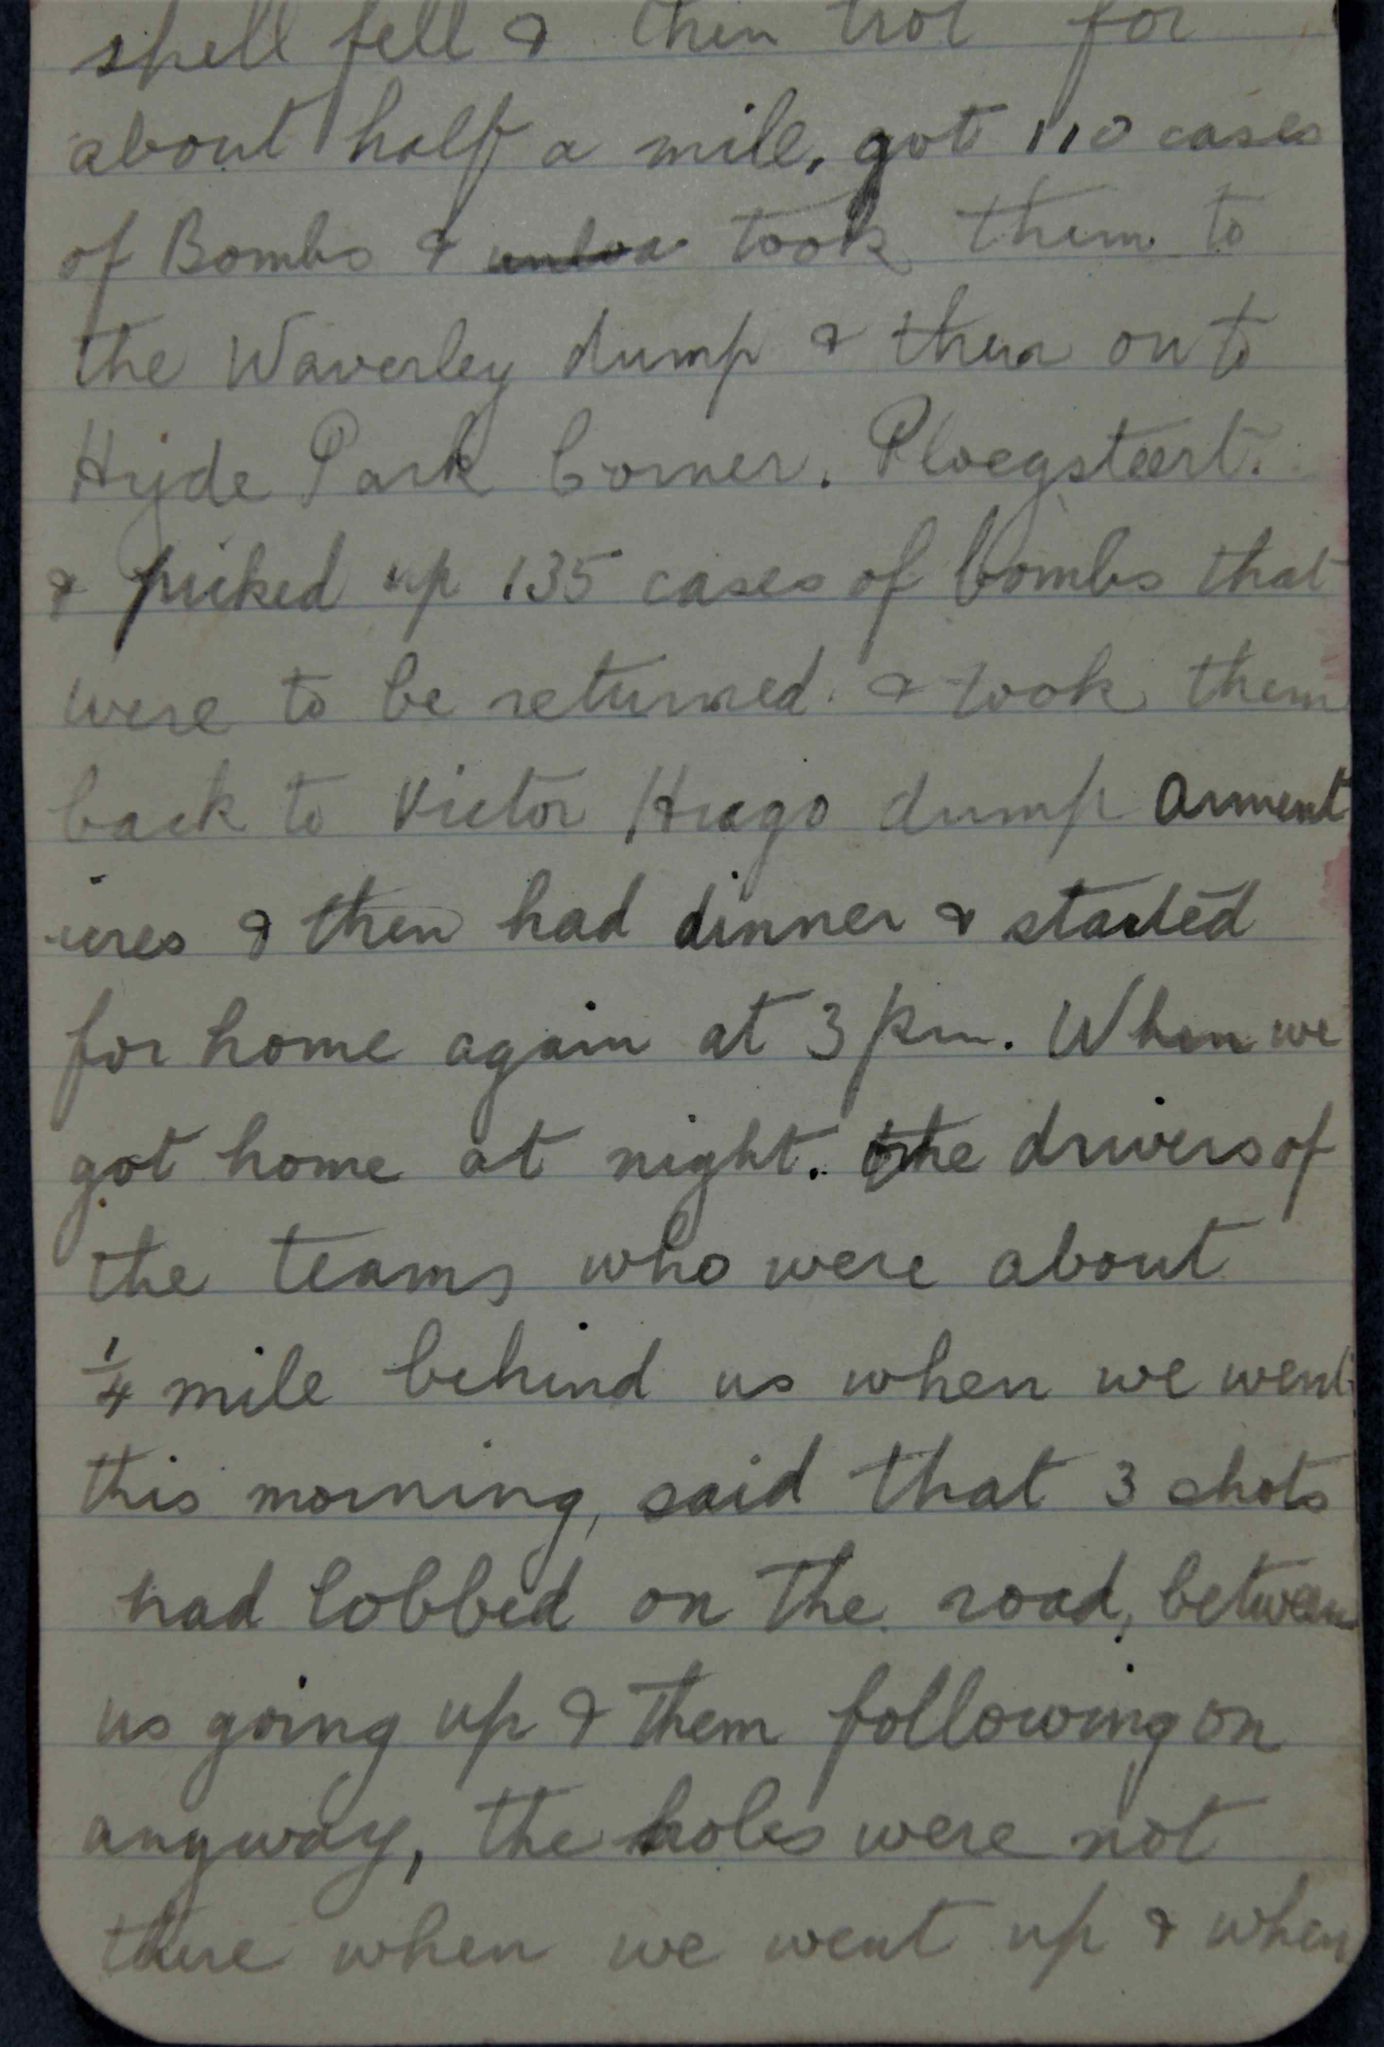 shell fell & then trot for
about half a mile, got 110 cases
of Bombs & unloa took them to
the Waverley dump & then on to
Hyde Park Corner. Ploegsteert.
& picked up 135 cases of bombs that
were to be returned & took them
back to Victor Hugo dump Arment
-ieres & then had dinner & started
for home again at 3 pm. When we
got home at night. the drivers of
the teams who were about
¼ mile behind us when we went
this morning, said that 3 shots
had lobbed on the road, between
us going up & them following on
anyway, the holes were not
there when we went up & when